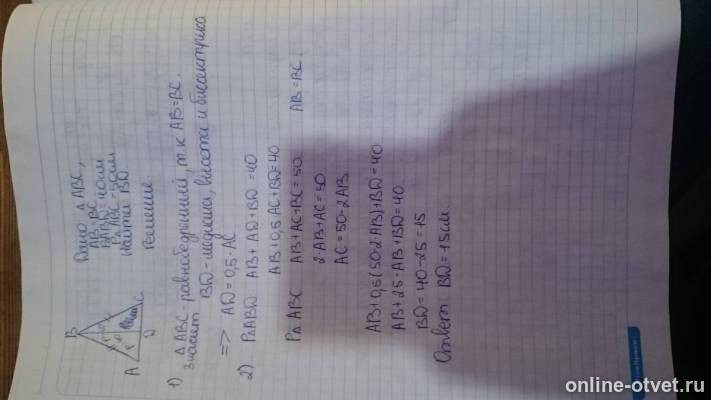 Дано: △ABC,
AB=BC
P△ABD=40см
P△ABC=50см
Найти: BD
Решение.
B
A
D
C
1) △ABC-равнобедренный, т.к AB=BC.
значит BD-медиана, высота и биссектриса
=> AD=0,5·AC
2) P△ABD AB+AD+BD=40
AB+0,5AC+BD=40
P△ABC AB+AC+BC=50 AB=BC.
2·AB+AC=50
AC=50-2AB.
AB+0,5(50-2AB)+BD=40
AB+25-AB+BD=40.
BD=40-25=15
Ответ: BD=15см.
online-otvet.ru